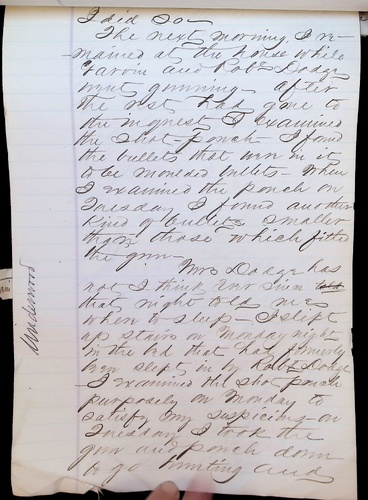 I did so—
The next morning, I re-
-mained at the house while
and Robt Dodge
went gunning - after
the rest had gone to
the inquest I examined
the shot pouch I found
the bullets that were in it
to be moulded bullets - When
I examined the pouch on
Tuesday I found another
kind of bullets smaller
than those which fitted
the gun—
Mrs Dodge has
not I think ever since
that night told me
where to sleep - I slept
up stairs on Monday night
in the bed that had formerly
been slept in by Robt Dodge
- I examined the shot pouch
purposely on Monday to
satisfy my suspicions - on
Tuesday I took the
gun and pouch down
to go hunting and
Underwood